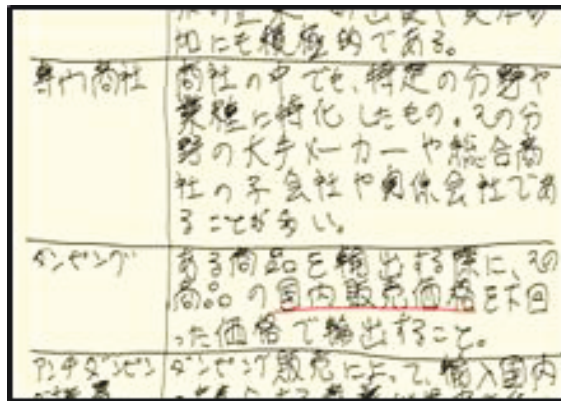 加にも積極的である。
専門商社
商社の中でも、特定の分野や
業種に特化したもの。その分
野の大手メーカーや総合商
社の子会社や関係会社であ
ることが多い。
ダンピング
ある商品を輸出する際に、その
商品の国内販売価格を下回
った価格で輸出すること。
アンチダンピン
ダンピング販売によって、輸入国内